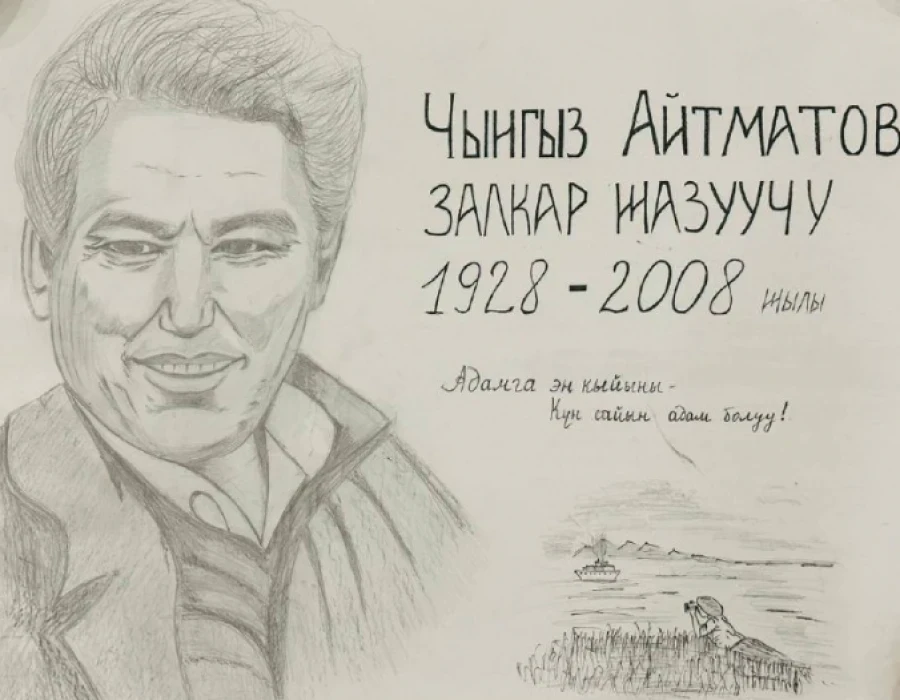 Чынгыз Айтматов
залкар жазуучу
1928 - 2008 жылы
Адамга эң кыйыны -
Күн сайын адам болуу!